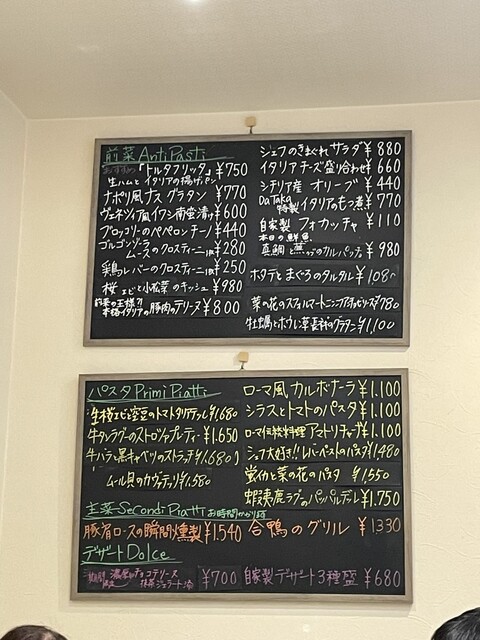 前菜 AntiPasti
「トルタフリッタ」¥750
生ハムとイタリアの揚げパン
ナポリ風ナスグラタン ¥770
ヴェネツィア風イワシ南蛮漬け ¥600
ブロッコリーのペペロンチーノ ¥440
ゴルゴンゾーラ
ムースのクロスティーニ 1枚 ¥280
鶏レバーのクロスティーニ 1枚 ¥250
桜エビと小松菜のキッシュ ¥980
前菜の王様?!
本格イタリアの豚肉のテリーヌ ¥800
シェフのきまぐれサラダ ¥880
イタリアチーズ盛り合わせ ¥660
シチリア産 オリーブ ¥440
DaTaka
特製 イタリアのもつ煮 ¥770
自家製 フォカッチャ ¥110
本日の鮮魚
真鯛と燕のカルパッチョ ¥980
ホタテとまぐろのタルタル ¥1,08
菜の花のスフォルマート ¥780
牡蠣とホウレン草のグラタン ¥1,100
パスタ Primi Piatti
生桜エビと空豆のトマトタリアテッレ ¥1,680
牛タンラグーのストロッツァプレティー ¥1.650
牛バラと黒キャベツのストラッチ ¥1,680
ムール貝のカヴァテッリ ¥1,580
ローマ風 カルボナーラ ¥1.100
シラスとトマトのパスタ ¥1.100
ローマ伝統料理 アマトリチャーナ ¥1.100
シェフ大好き!! レバーペーストのパスタ ¥1,480
蛍イカと菜の花のパスタ ¥1,550
蝦夷鹿ラグーのパッパルデレ ¥1.750
主菜 Secondi Piatti お時間かかります
豚肩ロースの瞬間燻製 ¥1.540
合鴨のグリル ¥1330
デザート Dolce
期間限定 濃厚チョコテリーヌ
抹茶ジェラート添 ¥700
自家製デザート3種盛 ¥680